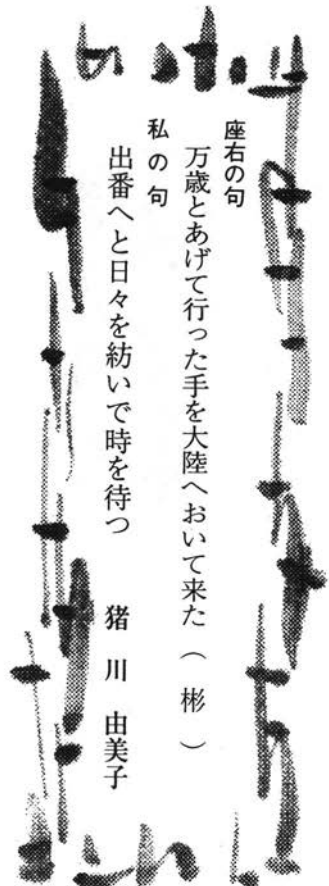 座右の句
万歳とあげて行った手を大陸へおいて来た（彬）
私の句
出番へと日々を紡いで時を待つ　猪川　由美子